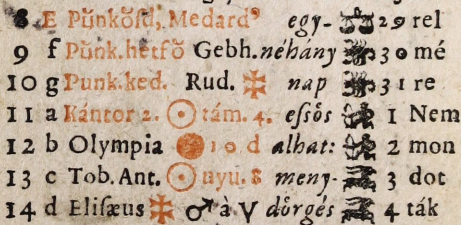 8 E Pŭnkŏſd, Medardꝰ egy- 29 rel
9 f Pŭnk.hetfŏ Gebh. néhány 30 mé
10 g Punk.ked. Rud. ✠ nap 31 re
11 a Kántor 2. ☉ tám. 4. eſsŏs 1 Nem
12 b Olympia 10 d alhat: 2 mon
13 c Tob. Ant. ☉ nyu. 8 meny- 3 dot
14 d Eliſæus ✠ ♂ à V dŏrgés 4 ták